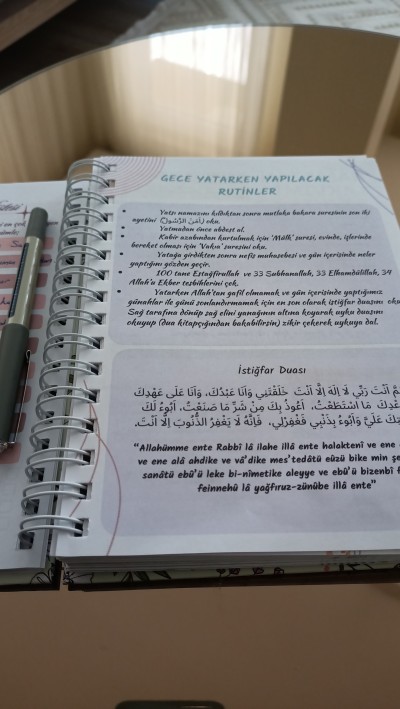 GECE YATARKEN YAPILACAK
RUTİNLER
• Yatsı namazını kıldıktan sonra mutlaka bakara suresinin son iki
ayetini (اٰمَنَ الرَّسُولُ) oku.
• Yatmadan önce abdest al.
• Kabir azabından kurtulmak için 'Mülk' suresi, evinde, işlerinde
bereket olması için 'Vakıa' suresini oku.
• Yatağa girdikten sonra nefis muhasebesi ve gün içerisinde neler
yaptığını gözden geçir.
• 100 tane Estağfirullah ve 33 Subhanallah, 33 Elhamdülillah, 34
Allah'u Ekber tesbihlerini çek.
• Yatarken Allah'tan gafil olmamak ve gün içerisinde yaptığımız
günahlar ile günü sonlandırmamak için en son olarak istiğfar duasını
Sağ tarafına dönüp sağ elini yanağının altına koyarak uyku duasını
okuyup (dua kitapçığından bakabilirsin) zikir çekerek uykuya dal.
İstiğfar Duası
أَنْتَ رَبِّي لَا إِلَهَ إِلَّا أَنْتَ خَلَقْتَنِي وَأَنَا عَبْدُكَ، وَأَنَا عَلَى عَهْدِكَ
مَا اسْتَطَعْتُ، أَعُوذُ بِكَ مِنْ شَرِّ مَا صَنَعْتُ، أَبُوءُ لَكَ
عَلَيَّ وَأَبُوءُ بِذَنْبِي فَاغْفِرْلِي، فَإِنَّهُ لَا يَغْفِرُ الذُّنُوبَ إِلَّا أَنْتَ.
"Allahümme ente Rabbî lâ ilahe illâ ente halaktenî ve ene
ve ene alâ ahdike ve vâ'dike mes'tedâtü eüzü bike min şe
sanâtü ebû'ü leke bi-nîmetike aleyye ve ebû'ü bizenbî f
feinnehü lâ yağfıruz-zünübe illâ ente"